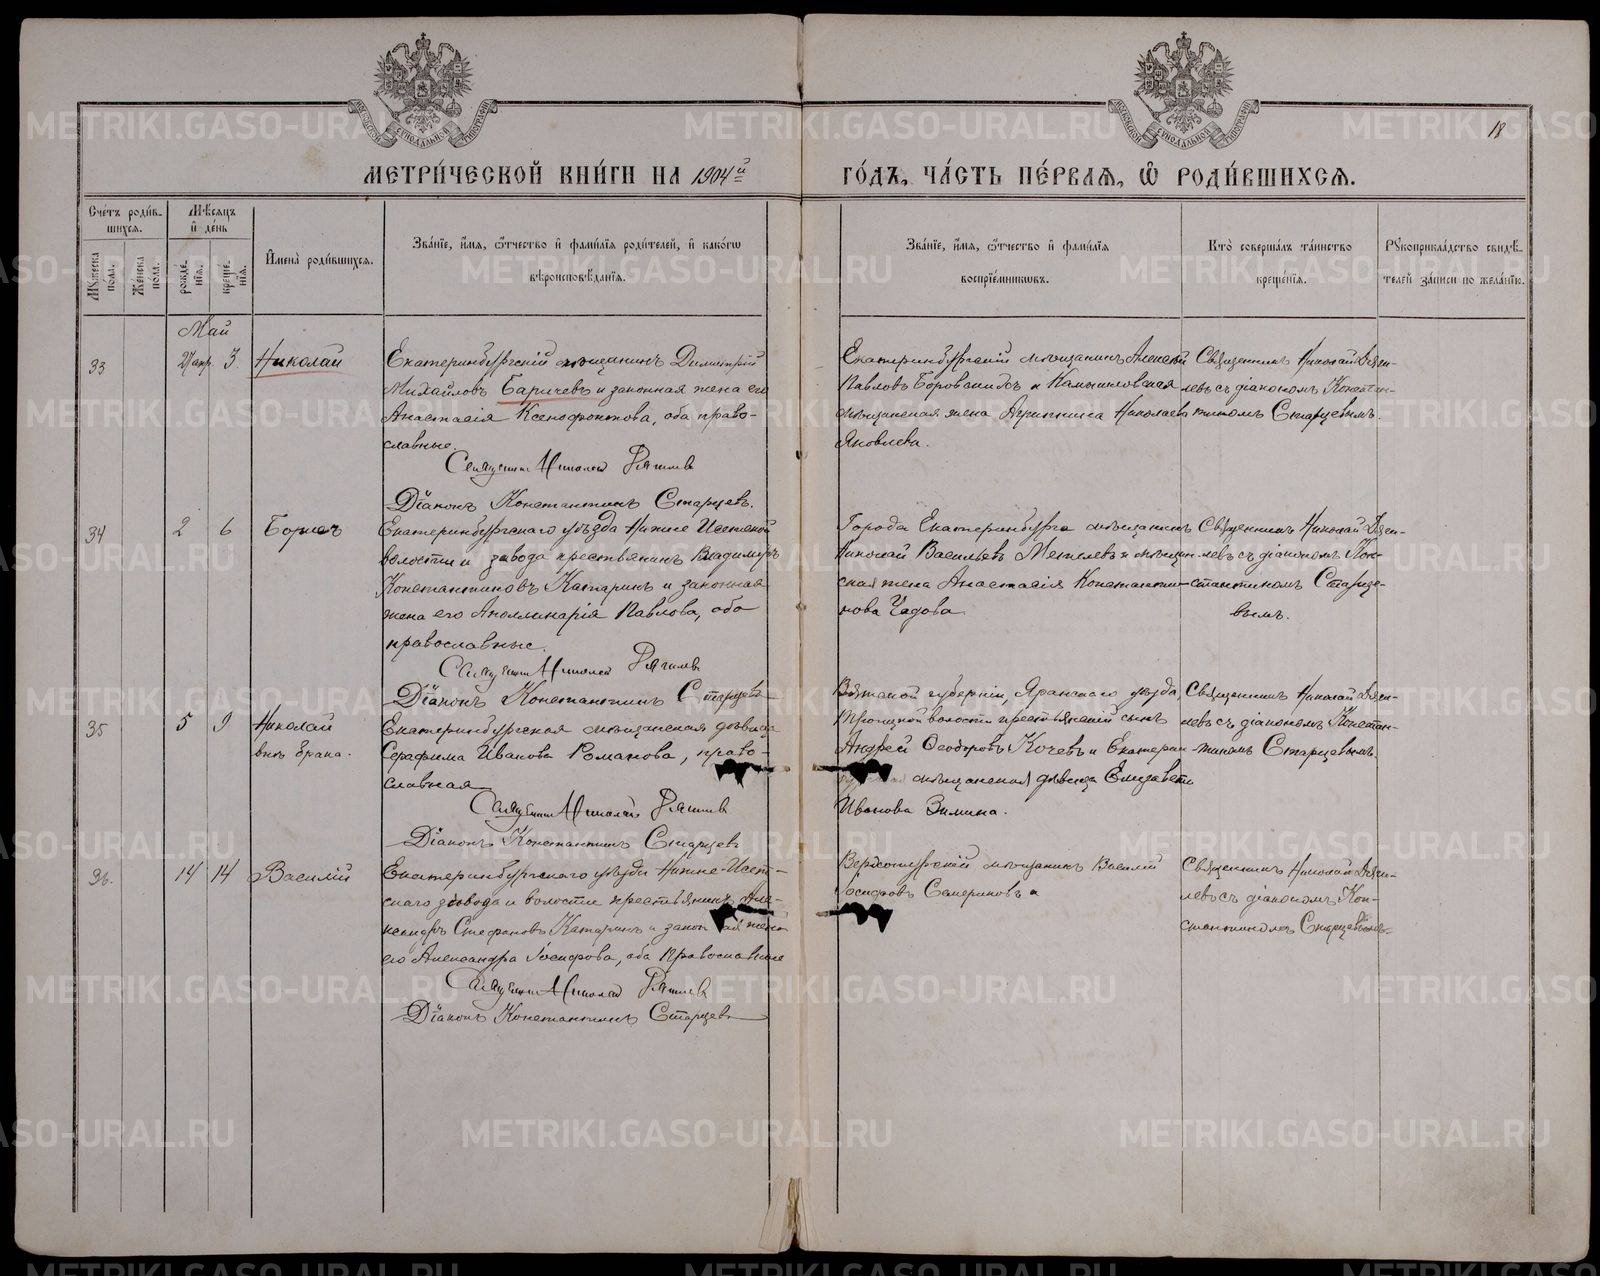 18
МЕТРИ́ЧЕСКОЙ КНИ́ГИ НА 1904й
ГО́ДЪ, ЧА́СТЬ ПЕ́РВАЯ, Ѽ РОДИ́ВШИХСЯ.
Сче́тъ роди́в-
шихся.
Мꙋ́жеска пола.
Же́нска по́ла.
Мѣ́сяцъ
и де́нь
рожде-
нїя.
креще-
нїя.
И҆мена̀ роди́вшихся.
Зва́нїе, и҆́мя, ѻ҆́тчество и҆ фами́лїя роди́телей, и҆ како́гѡ
вѣроисповѣ́данїя.
Зва́нїе, и҆́мя, ѻ҆́тчество и҆ фами́лїя
воспрїе́мниковъ.
Кто̀ соверша́лъ та́инство
креще́нїя.
Рꙋкоприкла́дство свидѣ́-
телей за́писи по жела́нїю.
Май
33
27 апр. 3
Николай
Екатеринбургскій мѣщанинъ Димитрій
Михайловъ Баричевъ и законная жена его
Анастасія Ксенофонтова, оба право-
славные
Священникъ Николай
Діаконъ Константинъ Старцевъ.
Екатеринбургскій мѣщанинъ Алексѣй
Павловъ Боровскихъ и Камышловская
мѣщанская жена Агриппина Николаева
Яковлева.
Священникъ Николай
съ діакономъ Констан-
тиномъ Старцевымъ.
34
2 6
Борисъ
Екатеринбургскаго уѣзда Нижне Исетской
волости и завода крестьянинъ Владиміръ
Константиновъ Катаринъ и законная
жена его Аполлинарія Павлова, оба
православные.
Священникъ Николай
Діаконъ Константинъ Старцевъ
Города Екатеринбурга мѣщанинъ
Николай Васильевъ и мѣщан-
ская жена Анастасія Константи-
нова Чадова
Священникъ Николай
съ діакономъ Кон-
стантиномъ Старце-
вымъ.
35
5 9
Николай
внѣ брака.
Екатеринбургская мѣщанская дѣвица
Серафима Иванова Романова, право-
славная
Священникъ Николай
Діаконъ Константинъ Старцевъ
Вятской губерніи, Яранскаго уѣзда,
Троицкой волости крестьянскій сынъ
Андрей Ѳеодоровъ Кочевъ и Екатерин-
мѣщанская дѣвица Елизавета
Иванова Зимина.
Священникъ Николай
съ діакономъ Констан-
тиномъ Старцевымъ.
36.
14 14
Василій
Екатеринбургскаго уѣзда Нижне-Исет-
скаго завода и волости крестьянинъ Але-
ксандръ Стефановъ Катаринъ и закон ая жена
его Александра Іосифова, оба православные
Священникъ Николай
Діаконъ Константинъ Старцевъ
Верхотурскій мѣщанинъ Василій
Іосифовъ Самериновъ
Священникъ Николай
съ діакономъ Кон-
стантиномъ Старцевымъ.
METRIKI.GASO-URAL.RU